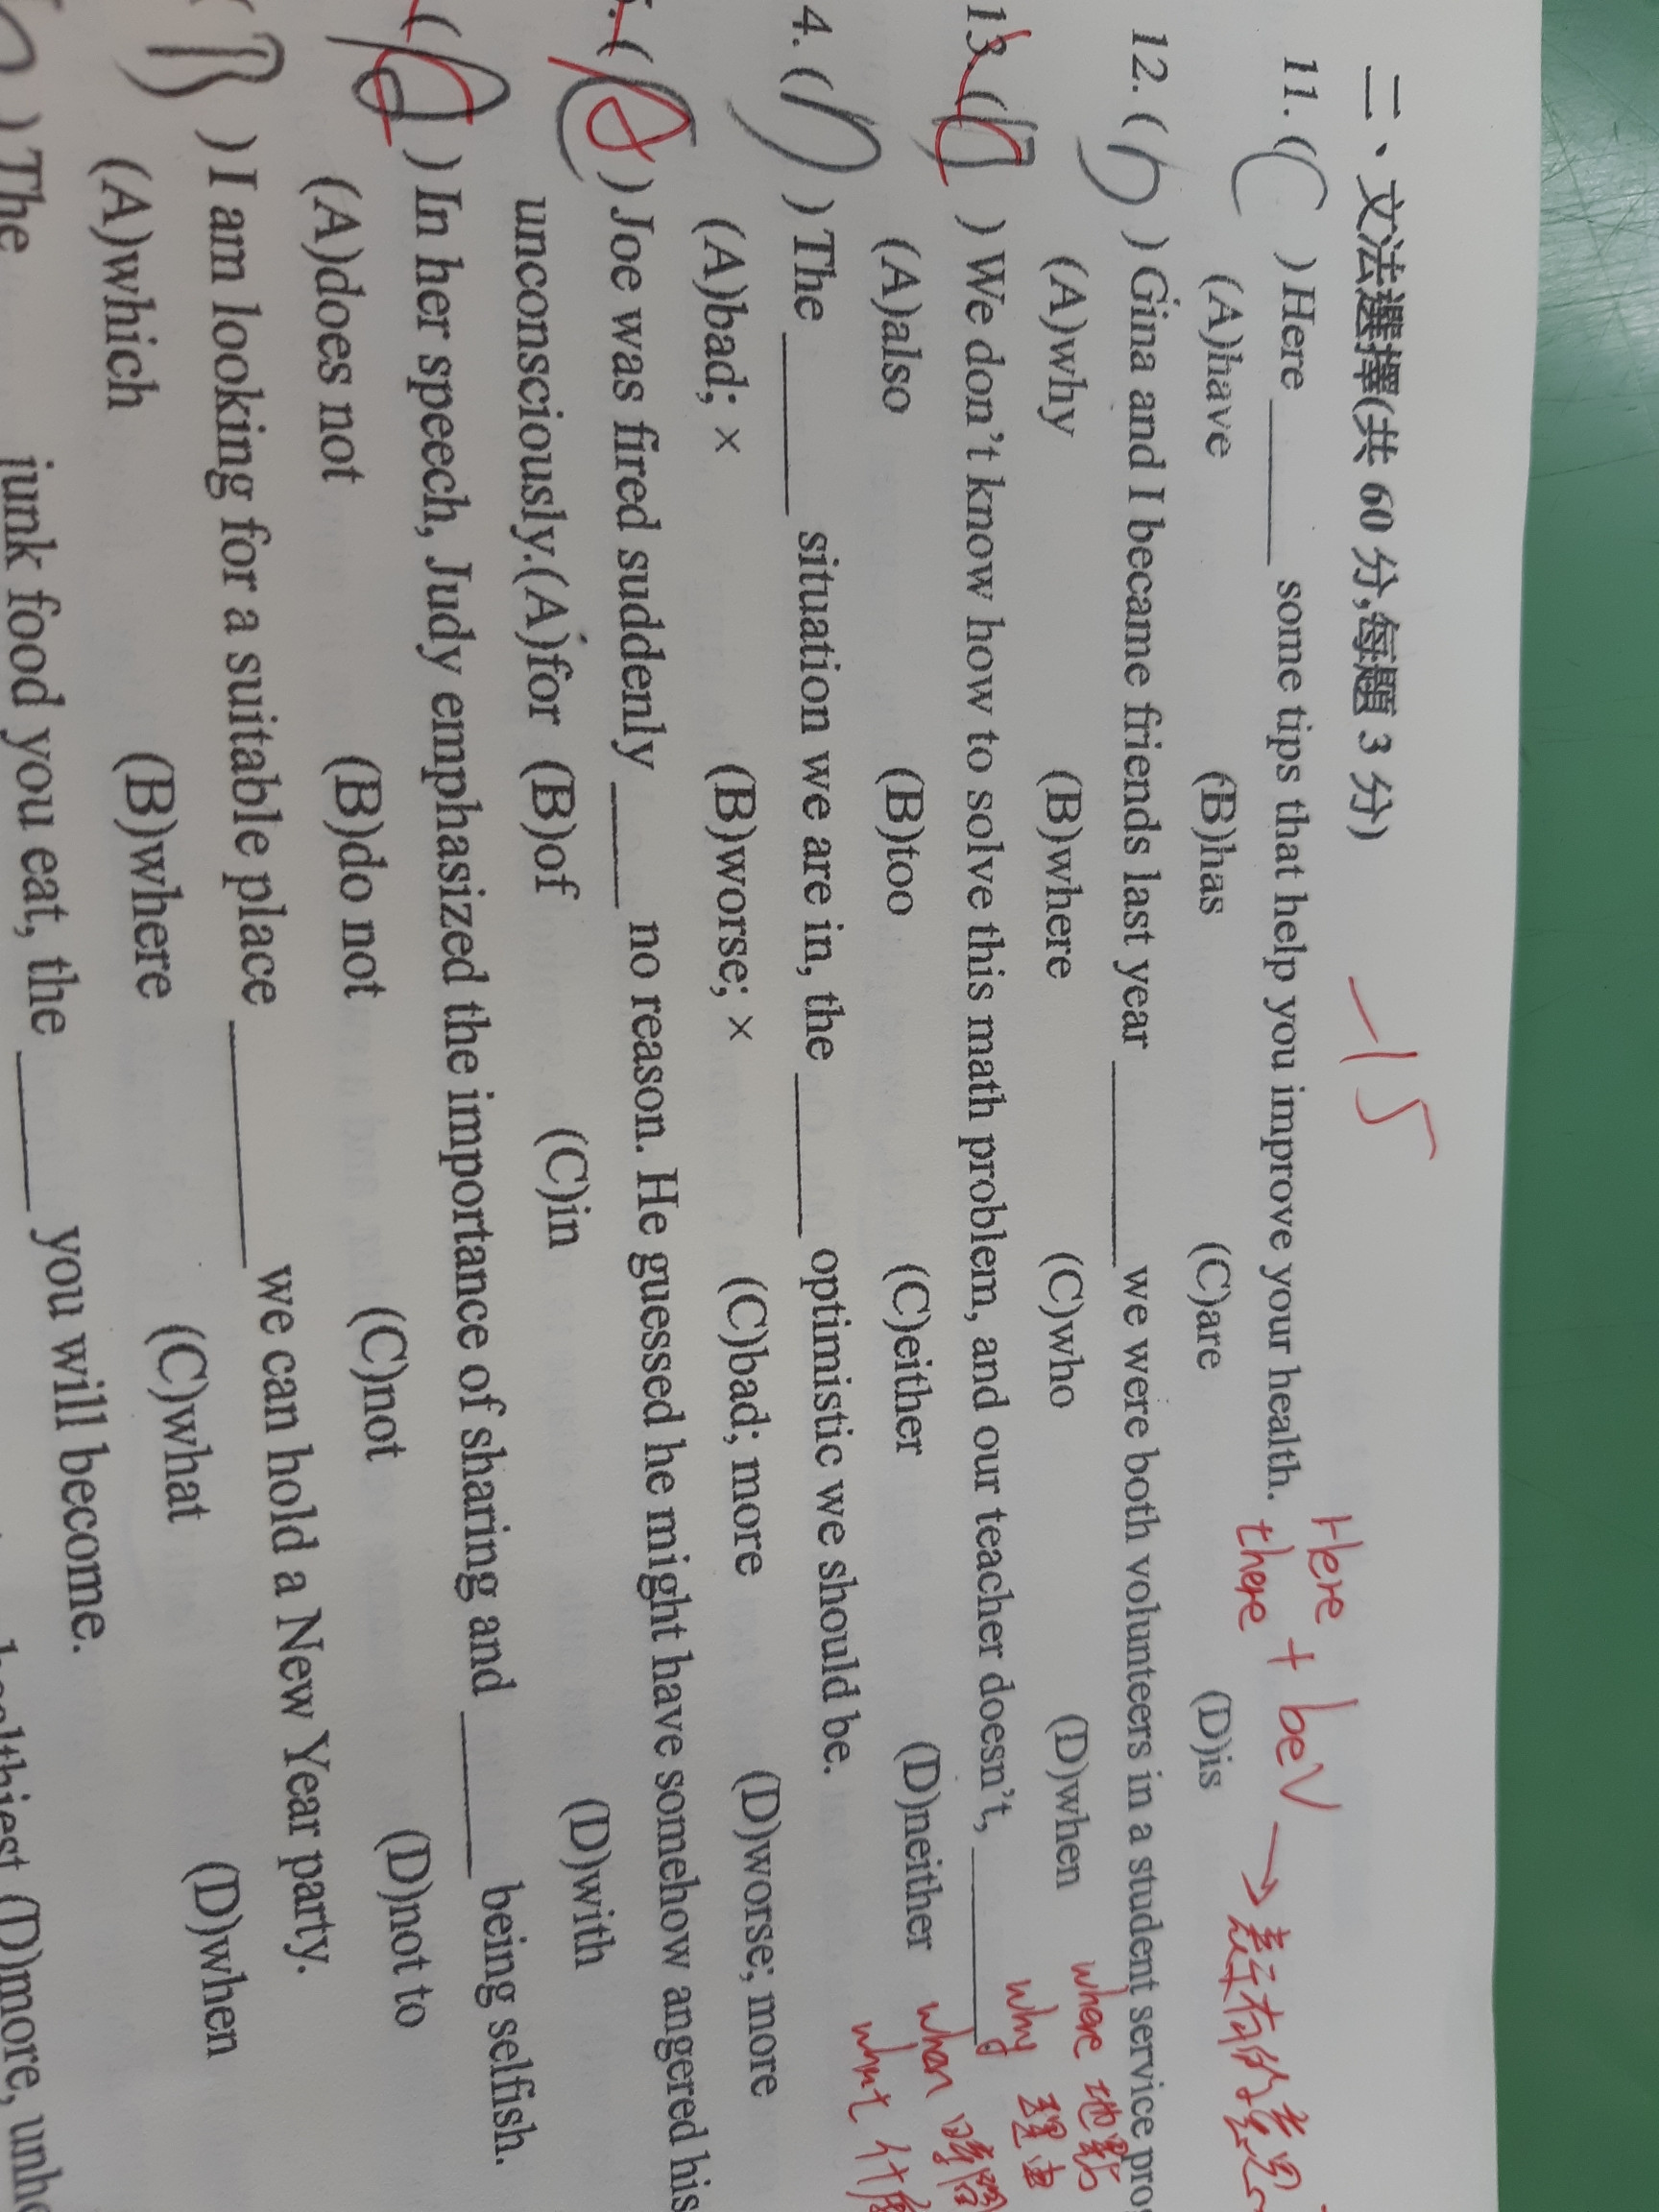 二、文法選擇(共 60 分,每題 3 分) -15
11. (C) Here ______ some tips that help you improve your health. Here there + beV → 表示有的意思
(A)have (B)has (C)are (D)is
12. (D) Gina and I became friends last year ________ we were both volunteers in a student service pro
(A)why (B)where (C)who (D)when where 地點
13. ( ) We don't know how to solve this math problem, and our teacher doesn't, ________ why 理由
(A)also (B)too (C)either (D)neither when 時間
4. (D) The ______ situation we are in, the ______ optimistic we should be. what 什麼
(A)bad; × (B)worse; × (C)bad; more (D)worse; more
( ) Joe was fired suddenly ____ no reason. He guessed he might have somehow angered his
unconsciously.(A)for (B)of (C)in (D)with
( ) In her speech, Judy emphasized the importance of sharing and ______ being selfish.
(A)does not (B)do not (C)not (D)not to
( B ) I am looking for a suitable place ________ we can hold a New Year party.
(A)which (B)where (C)what (D)when
) The junk food you eat, the ______ you will become.
(D)more, unhe